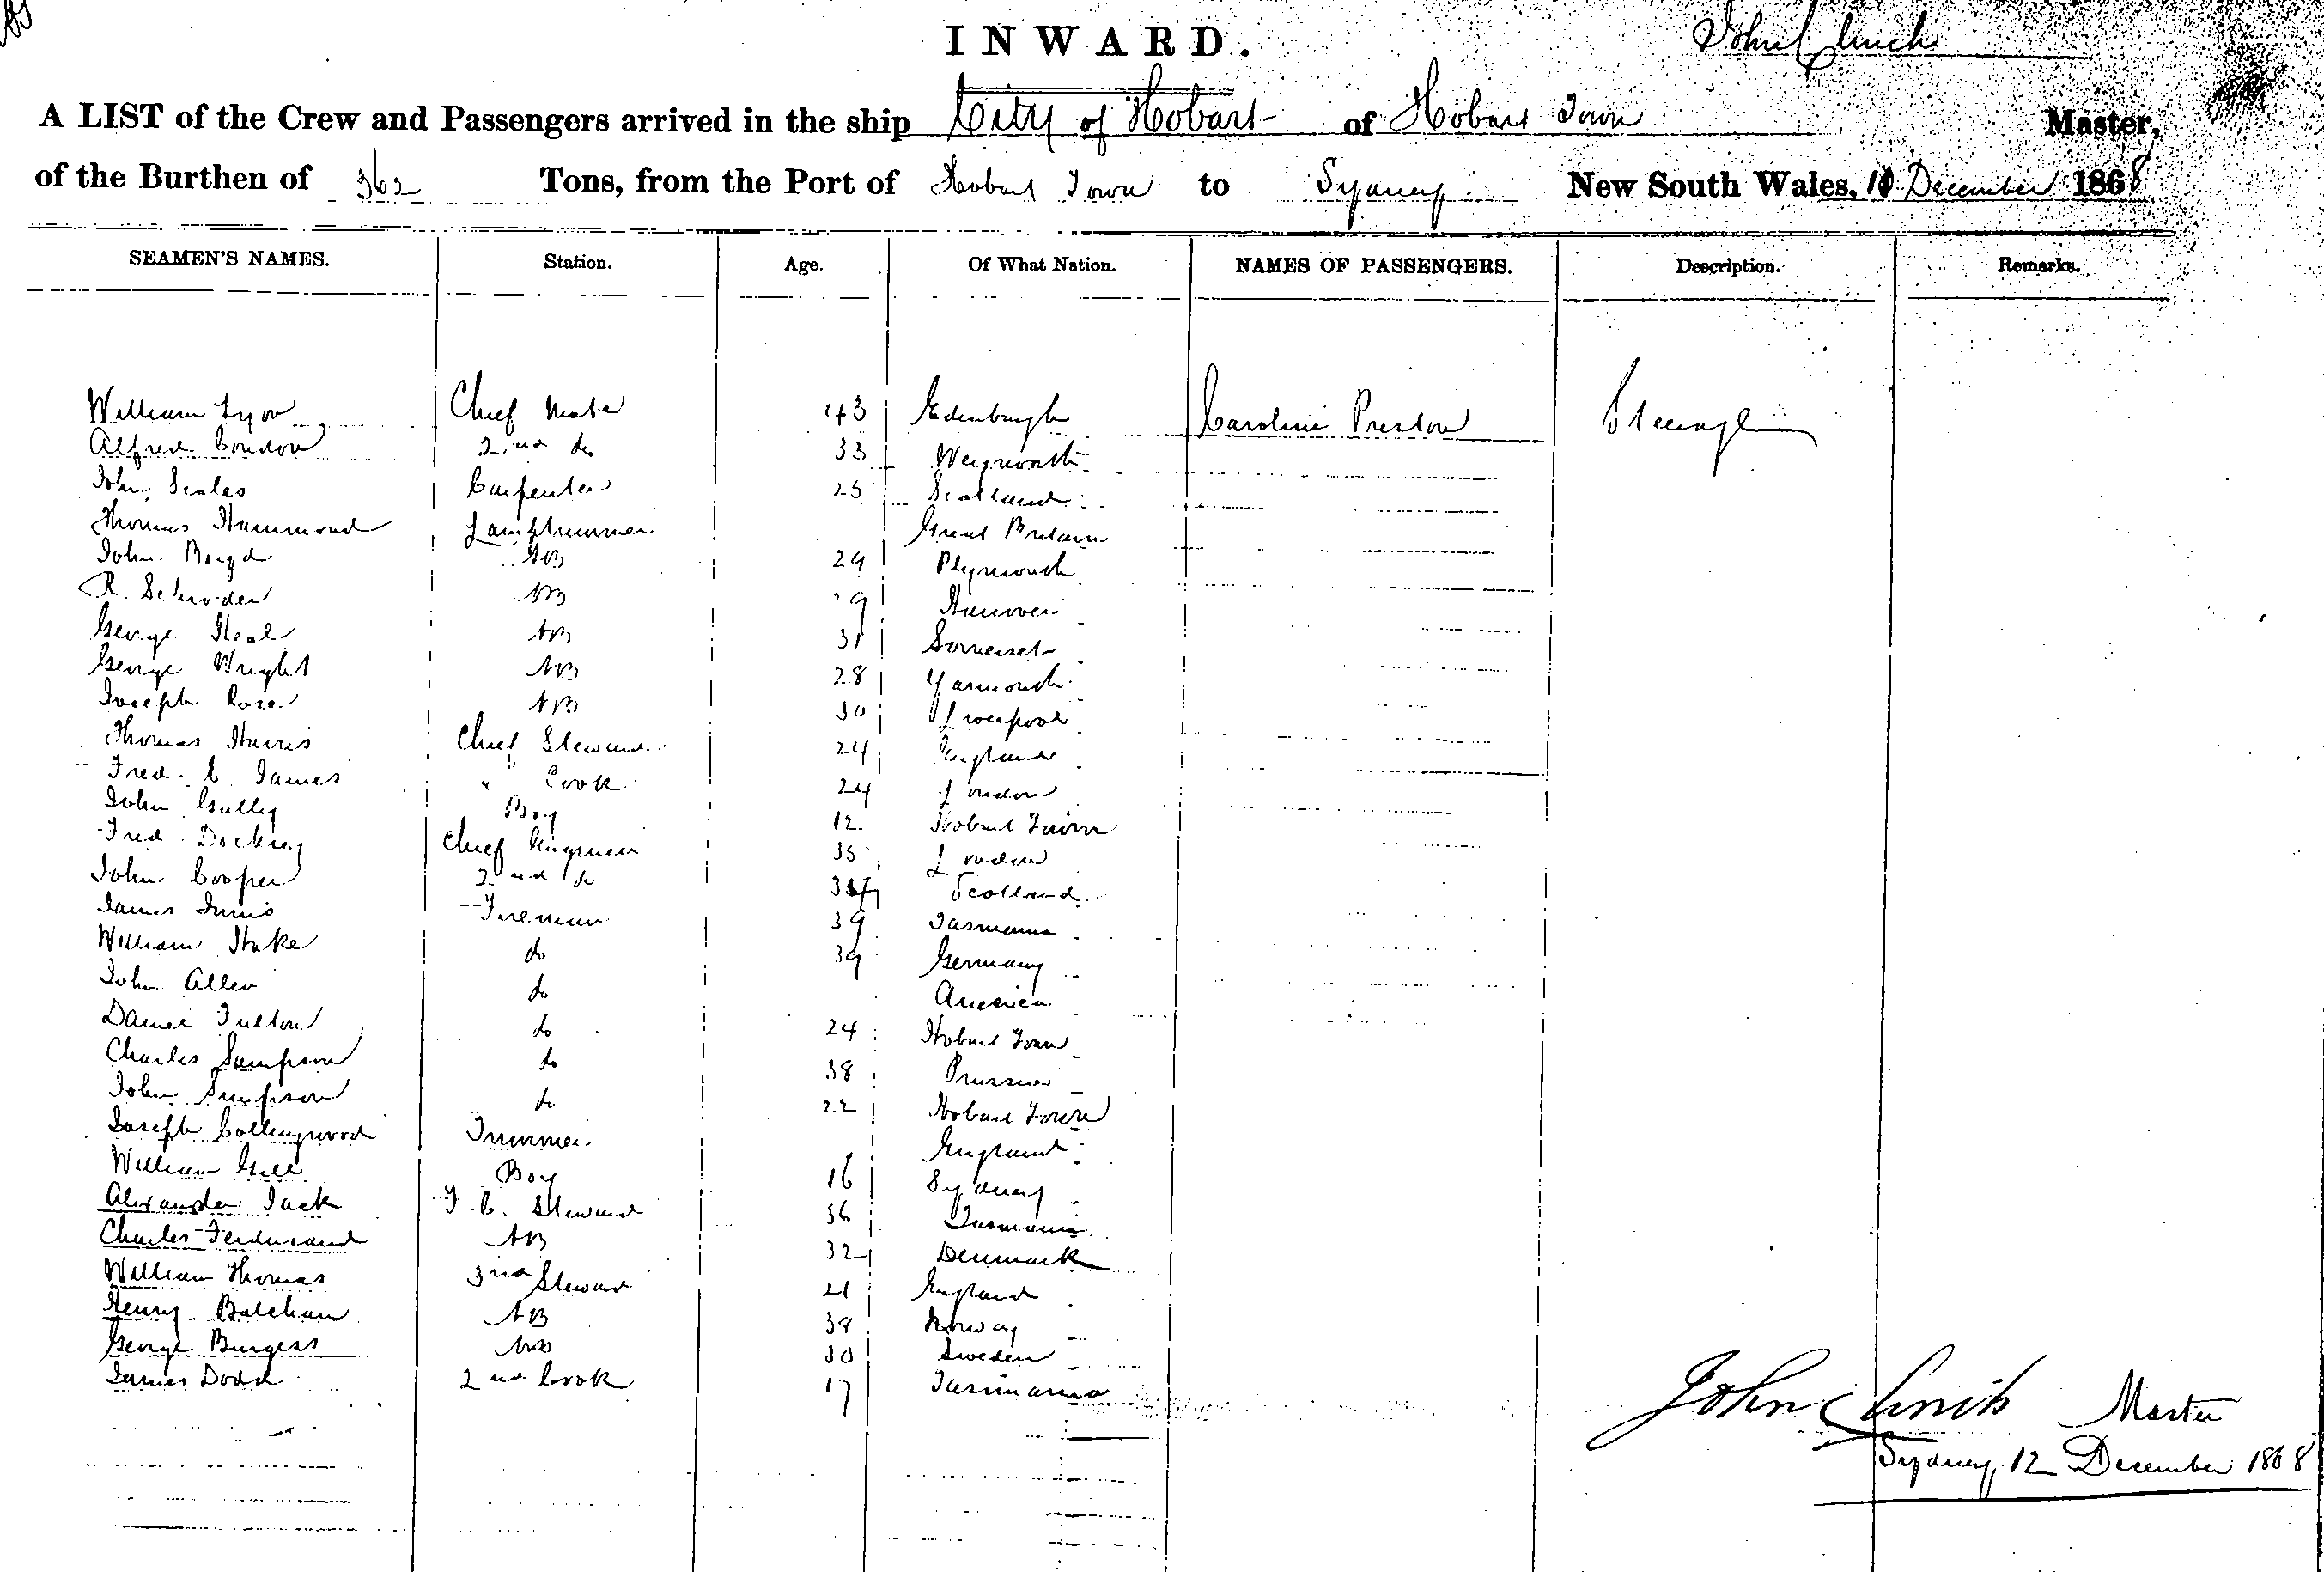 INWARD.
John Clinch
A LIST of the Crew and Passengers arrived in the ship City of Hobart of Hobart Town Master,
of the Burthen of 362 Tons, from the Port of Hobart Town to Sydney New South Wales, December 1868
SEAMEN'S NAMES. Station. Age. Of What Nation. NAMES OF PASSENGERS. Description. Remarks.
William Lyon Chief Mate 43 Edenburgh Caroline Preston Steerage
Alfred Condon 2nd do 33 Weymouth
John Scales Carpenter 25 Scotland
Thomas Hammond Lamptrimmer Great Britain
John Boyd AB 29 Plymouth
R. Schroder AB 29 Hanover
George Neal AB 31 Somerset
George Wright AB 28 Yarmouth
Joseph Rose AB 30 Liverpool
Thomas Harris Chief Steward 24 England
Fred. C. James " Cook 24 London
John Gully Boy 12 Hobart Town
Fred Dockray Chief Engineer 35 London
John Cooper 2nd do Scotland
James Innis Fireman 39 Tasmania
William Hake do 39 Germany
John Allen do America
Daniel Fulton do 24 Hobart Town
Charles Sampson do 38 Prussia
John Simpson do 22 Hobart Town
Joseph Collingwood Trimmer England
William Gill Boy 16 Sydney
Alexander Jack F. C. Steward 36 Tasmania
Charles Ferdinand AB 32 Denmark
William Thomas 3rd Steward 21 England
Henry Balchan AB 38 Norway
George Burgess AB 30 Sweden
James Dodd 2nd Cook 17 Tasmania
John Clinch Master
Sydney, 12 December 1868